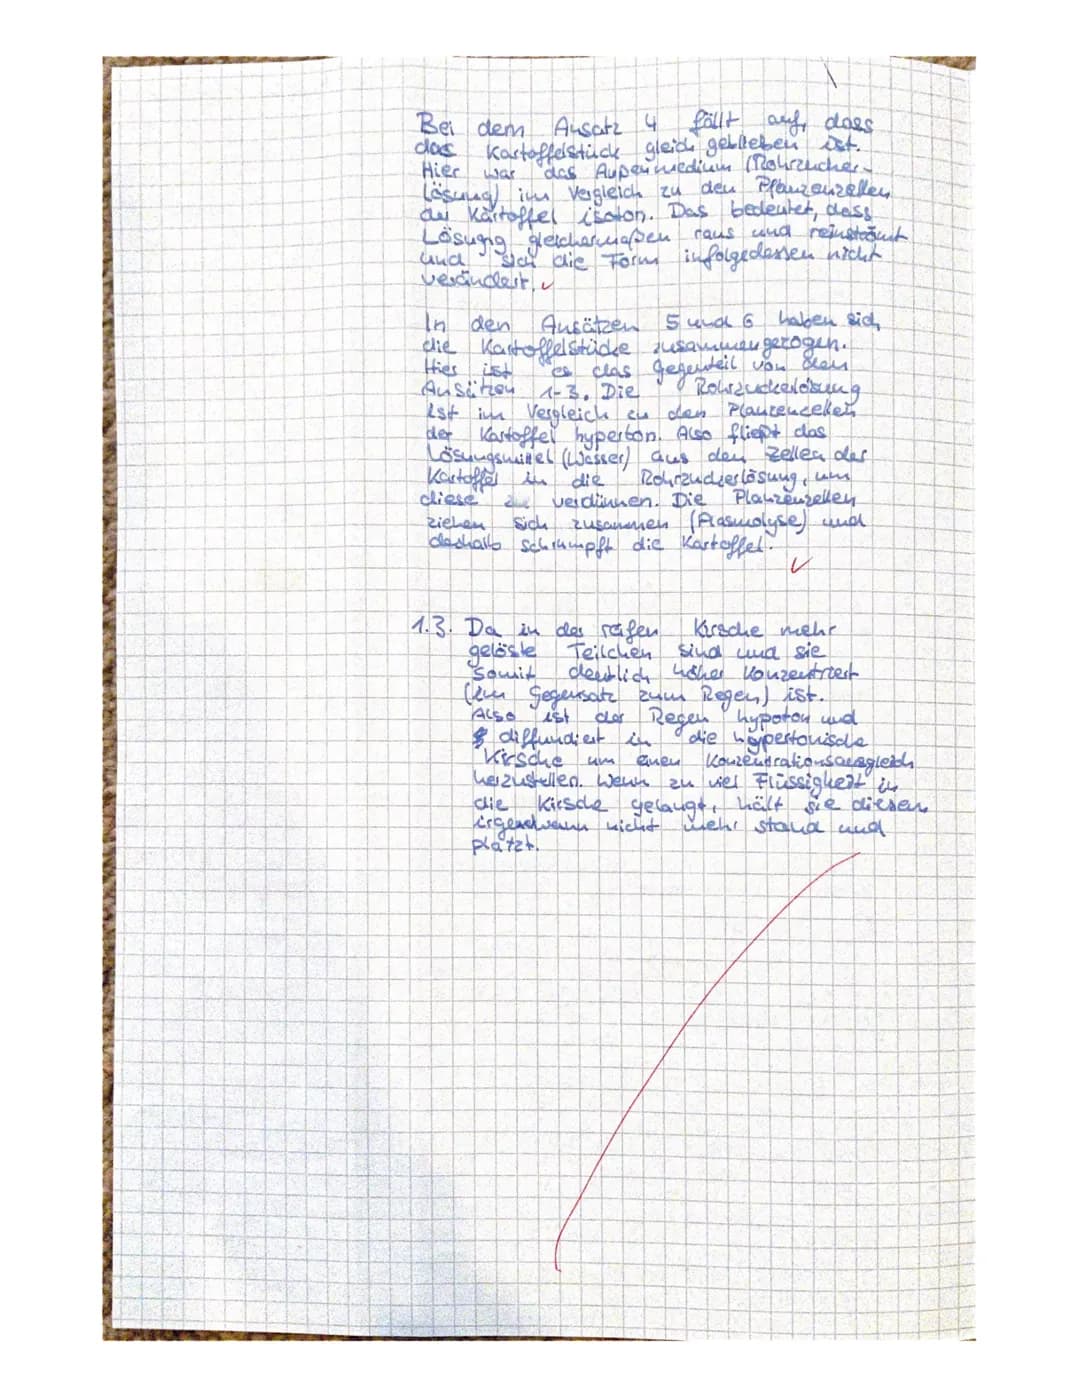 Bei dem Ansatz 4 fällt auf, dass
das Kartoffelstück gleich geblieben ist.
Hier war das Außenmedium (Rohrzucker-
lösung) im Vergleich zu den Pflanzenzellen
der Kartoffel isoton. Das bedeutet, dass
Lösung gleichermaßen raus und reinströmt
und sich die Form infolgedessen nicht
verändert.
In den Ansätzen 5 und 6 haben sich
die Kartoffelstücke zusammengezogen.
Hier ist es das Gegenteil von den
Ansätzen 1-3. Die Rohrzuckerlösung
ist im Vergleich zu den Planzenzellen
der Kartoffel hyperton. Also fließt das
Lösungsmittel (Wasser) aus den Zellen der
Kartoffel in die Rohrzuckerlösung, um
diese zu verdünnen. Die Planzenzellen
ziehen sich zusammen (Plasmolyse) und
deshalb schrumpft die Kartoffel.
1.3. Da in der reifen Kirsche mehr
gelöste Teilchen sind und sie
somit deutlich höher konzentriert
(im Gegensatz zum Regen) ist.
Also ist der Regen hypoton und
diffundiert in die hypertonische
Kirsche um einen Konzentrationsausgleich
herzustellen. Wenn zu viel Flüssigkeit in
die Kirsche gelangt, hält sie diesen
irgendwann nicht mehr stand und
platzt.